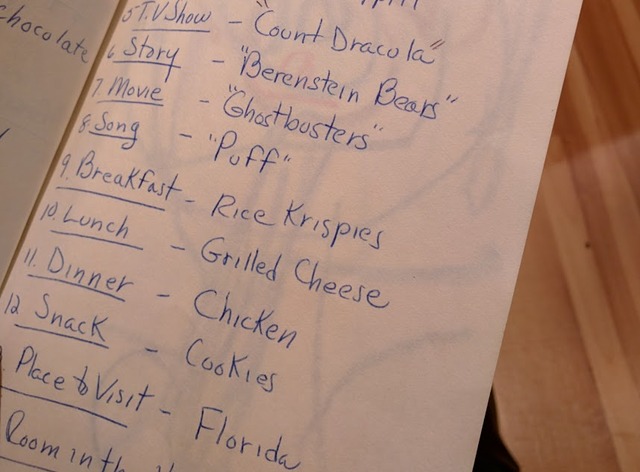 chocolate
5 T.V Show - "Count Dracula"
6. Story - "Berenstein Bears"
7. Movie - "Ghostbusters"
8. Song - "Puff"
9. Breakfast - Rice Krispies
10. Lunch - Grilled Cheese
11. Dinner - Chicken
12 Snack - Cookies
Place to Visit - Florida
Room in the